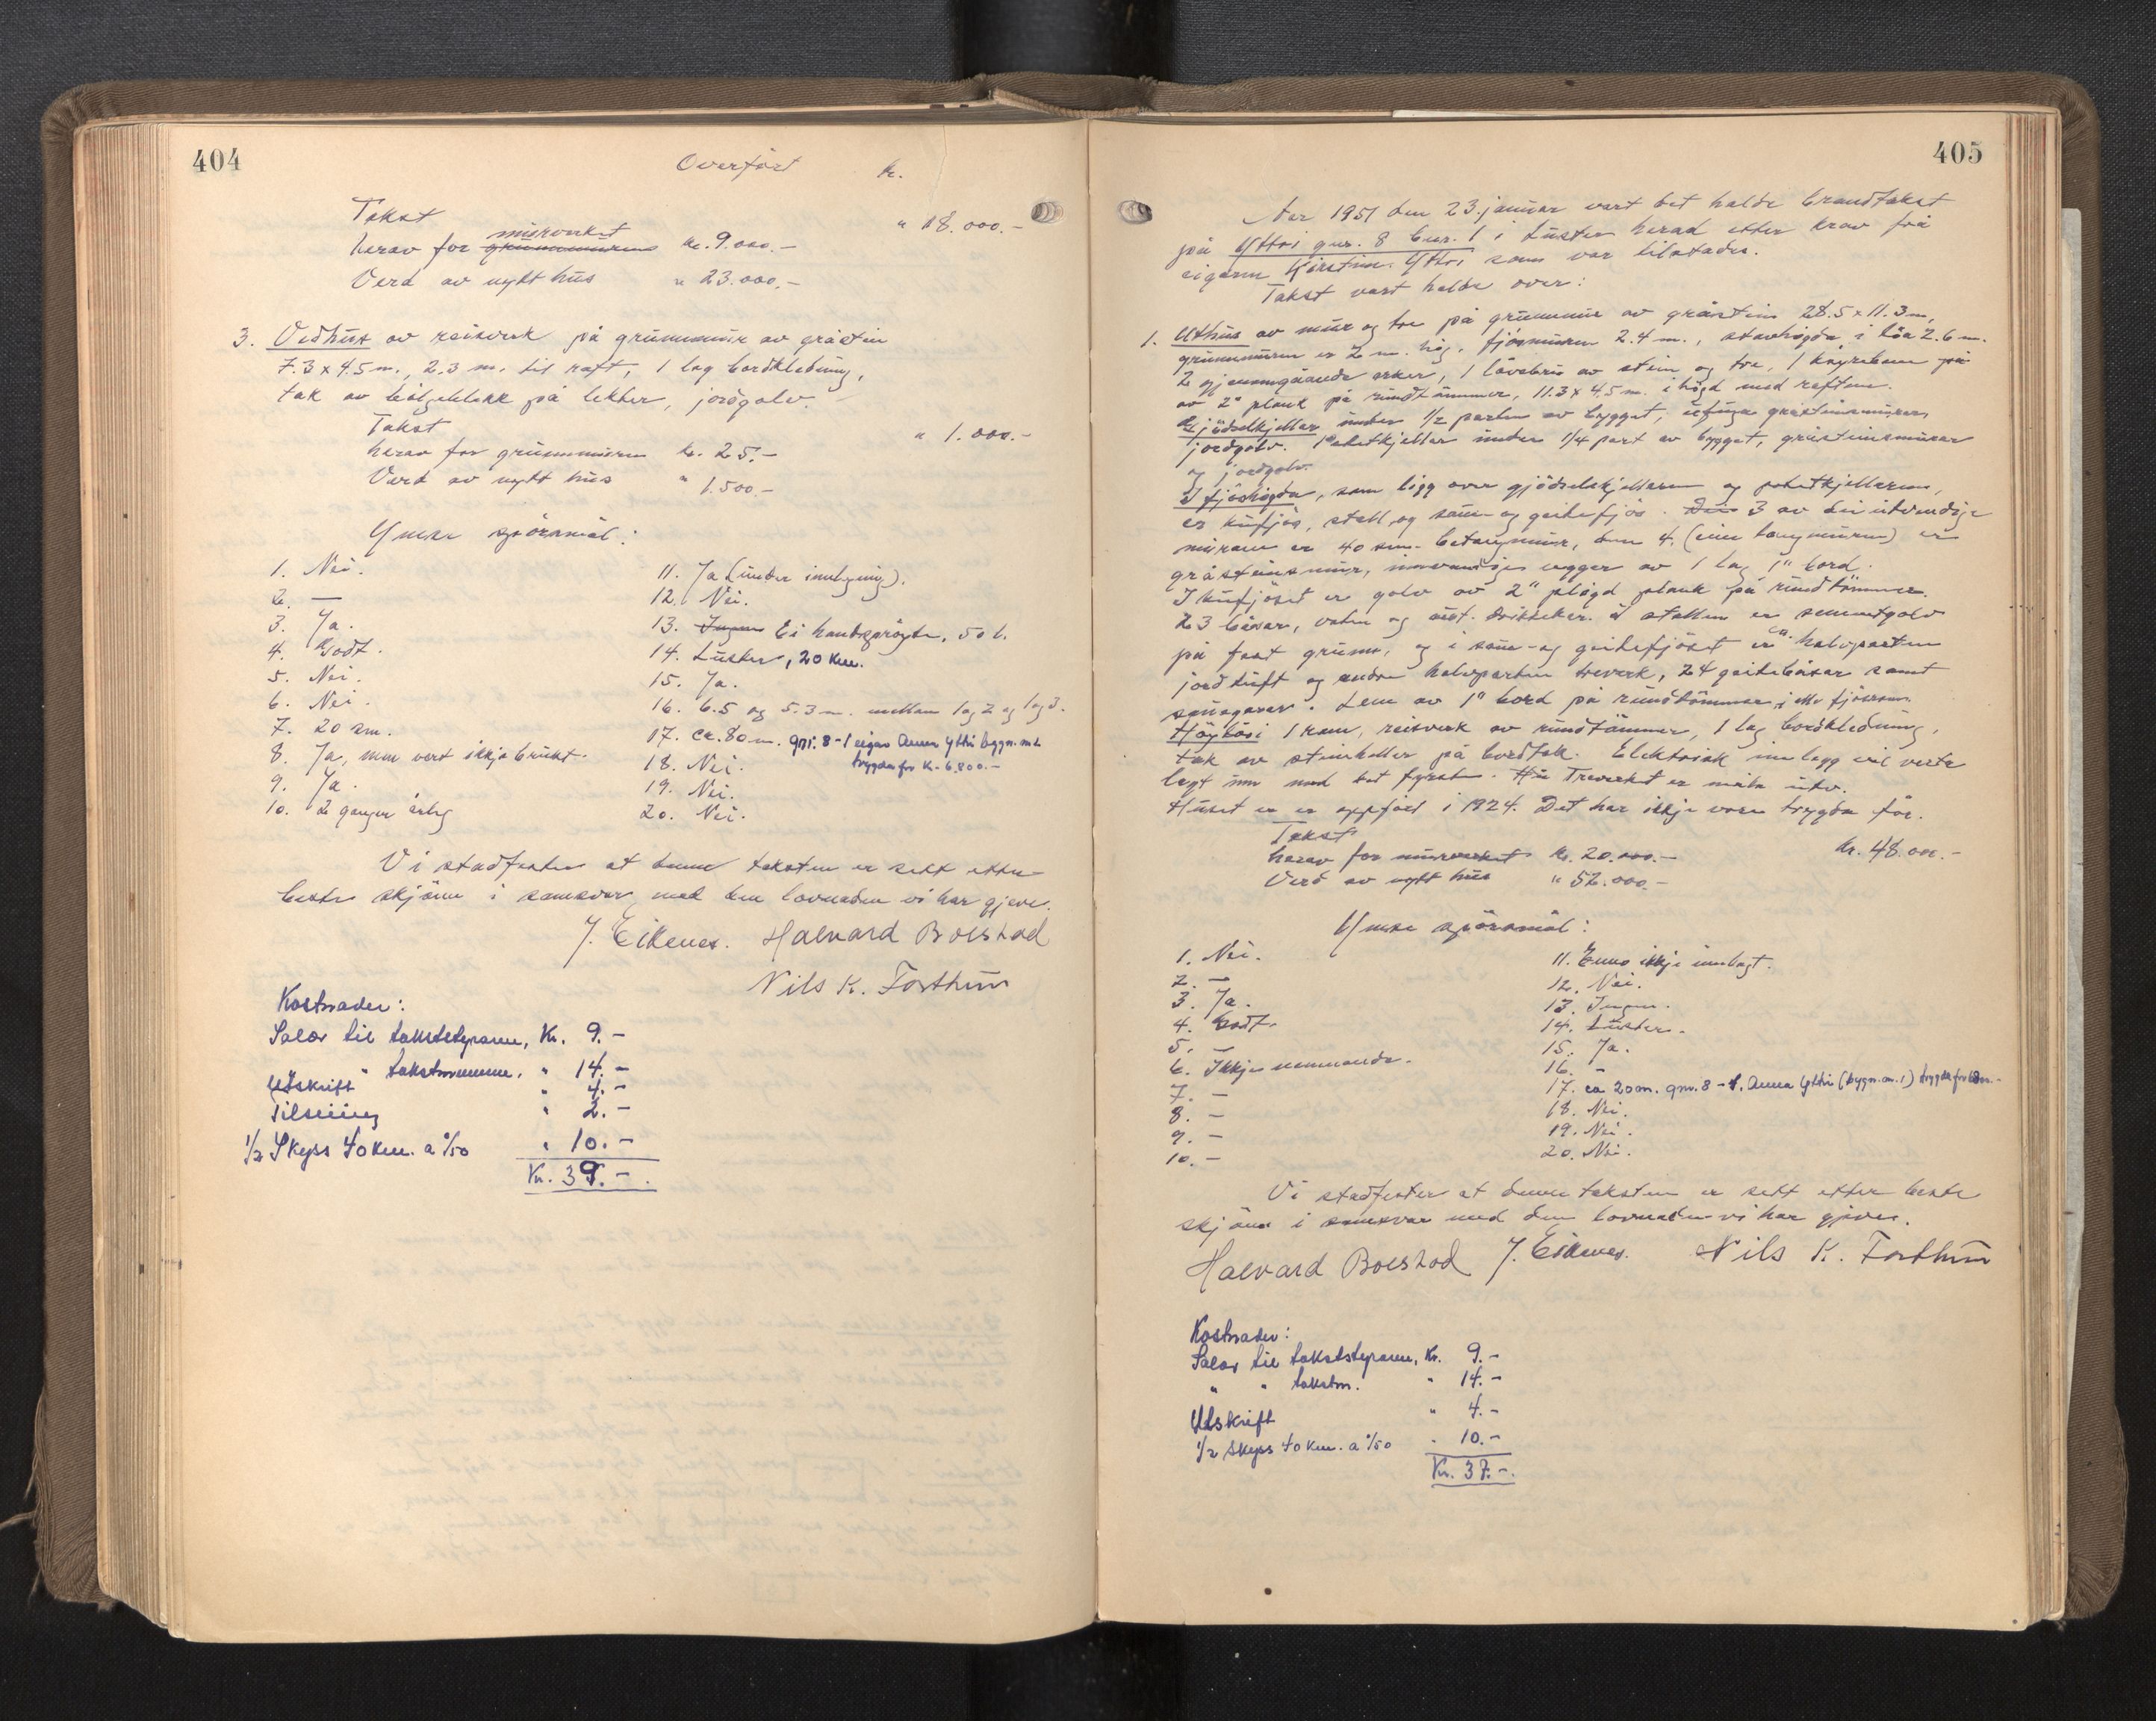 404
Overført kr.
Takst " 18.000.-
murverket
herav for grunnmuren kr. 9.000.-
Verd av nytt hus " 23.000.-
3. Vedhus av reisverk på grunnmur av gråstein
7.3 x 4.5 m., 2.3 m. til raft, 1 lag bordkledning,
tak av bølgeblekk på lekter, jordgolv.
Takst " 1.000.-
herav for grunnmuren kr. 25.-
Verd av nytt hus " 1.500.-
Ymse spörsmål:
1. Nei.
2. —
3. Ja.
4. Godt.
5. Nei.
6. Nei.
7. 20 cm.
8. Ja, men vert ikkje brukt.
9. Ja.
10. 2 gonger årleg
11. Ja (under innlegning).
12. Nei.
13. Ingen Ei handsprøyte, 50 l.
14. Luster, 20 km.
15. Ja.
16. 6.5 og 5.3 m. mellom 1 og 2 og 1 og 3.
17. ca. 80 m. gnr. 8-1 eigar Anna Yttri bygn. nr 2
trygda for K. 6.800.-
18. Nei.
19. Nei.
20. Nei.
Vi stadfester at denne taksten er sett etter
beste skjönn i samsvar med den lovnaden vi har gjeve.
J. Eikenes. Halvard Bolstad
Nils K. Forthun
Kostnader:
Salær til takststyraren, Kr. 9.-
" takstmennene, " 14.-
Utskrift " 4.-
Tilseiing " 2.-
1/2 Skyss 40 km. a %50 " 10.-
Kr. 39.-
405
År 1951 den 23. januar vart det halde brandtakst
på Yttri gnr. 8 bnr. 1 i Luster herad etter krav frå
eigaren Kirstin. Yttri som var tilstades.
Takst vart halde over:
1. Uthus av mur og tre på grunnmur av gråstein 28.5 x 11.3 m,
grunnmuren er 2 m. høg, fjösmuren 2.4 m., stavhögda i löa 2.6 m.
2 gjennomgåande arker, 1 låvebru av stein og tre, 1 køyrebru på
av 2" plank på rundtømmer, 11.3 x 4.5 m. i högd med raftene.
Gjödselkjellar under 1/2 parten av bygget, ufuga gråsteinsmurar,
jordgolv. Potetkjellar under 1/4 part av bygget, gråsteinsmurar
og jordgolv.
I fjöshögda, som ligg over gjödselskjellaren og potetkjellaren,
er kufjös, stall og sau- og geitefjös. 3 av dei utvendige
murane er 40 cm. betongmur, den 4. (ein langmuren) er
gråsteinsmur, innvendige vegger av 1 lag 1" bord.
I kufjöset er golv av 2" pløgd plank på rundtömmer.
23 båsar, vatn og aut. drikkekar. I stallen er sementgolv
på fast grunn, og i sau- og geitefjöset er halvparten
jordtuft og andre halvparten treverk, 24 geitebåsar samt
sauegarar. Lem av 1" bord på rundtömmer i alle fjösrom.
Höyløsi 1 rom, reisverk av rundtömmer, 1 lag bordkledning,
tak av steinheller på bordtak. Elektrisk innlegg vil verte
lagt inn med det fyrste. Treverket er måla utv.
Huset er er oppført i 1924. Det har ikkje vore trygda før.
Takst Kr. 48.000.-
herav for murverket kr. 20.000.-
Verd av nytt hus " 52.000.-
Ymse spörsmål:
1. Nei.
2. —
3. Ja.
4. Godt.
5. —
6. Ikkje nemnande.
7. —
8. —
9. —
10. —
11. Enno ikkje innlagt.
12. Nei.
13. Ingen.
14. Luster.
15. Ja.
16. -
17. ca 20 m. gnr. 8-1. Anna Yttri (bygn. nr. 1) trygda for
18. Nei.
19. Nei.
20. Nei.
Vi stadfester at denne taksten er sett etter beste
skjönn i samsvar med den lovnaden vi har gjeve.
Halvard Bolstad J. Eikenes. Nils K. Forthun
Kostnader:
Salær til takststyraren, Kr. 9.-
" " takstm. " 14.-
Utskrift " 4.-
1/2 Skyss 40 km. a %50 " 10.-
Kr. 37.-